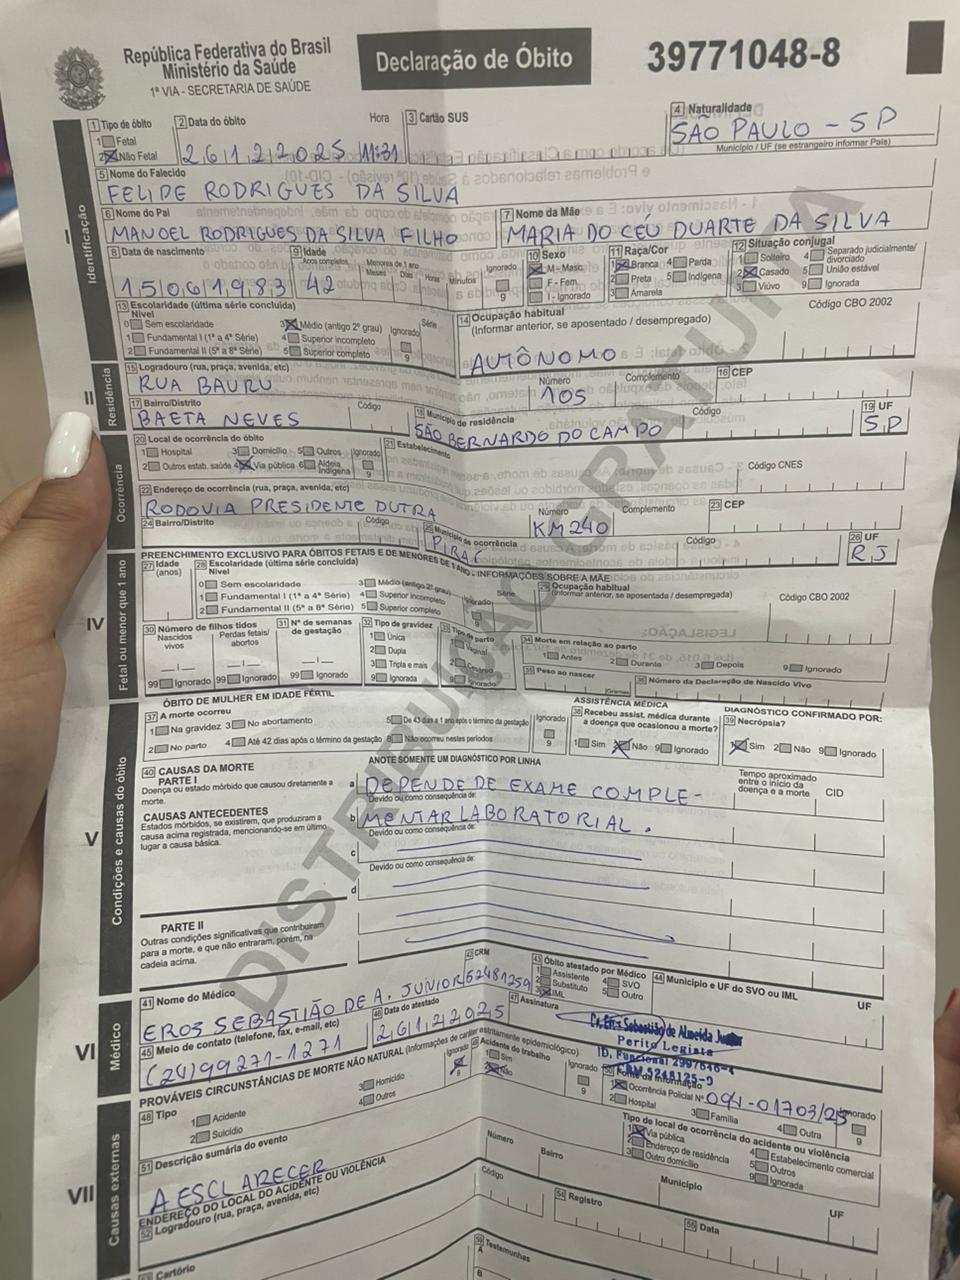 República Federativa do Brasil
Ministério da Saúde
1ª VIA - SECRETARIA DE SAÚDE
Declaração de Óbito
39771048-8
I
Identificação
1 Tipo de óbito
1 Fetal
2 Não Fetal
2 Data do óbito Hora
26122025 11:31
3 Cartão SUS
4 Naturalidade
SÃO PAULO - SP
Município / UF (se estrangeiro informar País)
5 Nome do Falecido
FELIPE RODRIGUES DA SILVA
6 Nome do Pai
MANOEL RODRIGUES DA SILVA FILHO
7 Nome da Mãe
MARIA DO CÉU DUARTE DA SILVA
8 Data de nascimento
15061983
9 Idade
Anos completos Menores de 1 ano Ignorado
Meses Dias Horas Minutos
42
9
10 Sexo
M - Masc.
F - Fem.
I - Ignorado
11 Raça/Cor
1 Branca 4 Parda
2 Preta 5 Indígena
3 Amarela
12 Situação conjugal
1 Solteiro 4 Separado judicialmente/ divorciado
2 Casado 5 União estável
3 Viúvo 9 Ignorada
13 Escolaridade (última série concluída)
Nível Série
0 Sem escolaridade 3 Médio (antigo 2º grau) Ignorado
1 Fundamental I (1ª a 4ª Série) 4 Superior incompleto
2 Fundamental II (5ª a 8ª Série) 5 Superior completo 9
14 Ocupação habitual Código CBO 2002
(Informar anterior, se aposentado / desempregado)
AUTÔNOMO
II
Residência
15 Logradouro (rua, praça, avenida, etc) Número Complemento 16 CEP
RUA BAURU 105
17 Bairro/Distrito Código 18 Município de residência Código 19 UF
BAETA NEVES SÃO BERNARDO DO CAMPO SP
Ocorrência
20 Local de ocorrência do óbito
1 Hospital 3 Domicílio 5 Outros Ignorado
2 Outros estab. saúde 4 Via pública 6 Aldeia Indígena 9
21 Estabelecimento Código CNES
22 Endereço de ocorrência (rua, praça, avenida, etc) Número Complemento 23 CEP
RODOVIA PRESIDENTE DUTRA KM240
24 Bairro/Distrito Código 25 Município de ocorrência Código 26 UF
PIRAÍ RJ
IV
Fetal ou menor que 1 ano
PREENCHIMENTO EXCLUSIVO PARA ÓBITOS FETAIS E DE MENORES DE 1 ANO - INFORMAÇÕES SOBRE A MÃE
27 Idade (anos)
28 Escolaridade (última série concluída)
Nível Série
0 Sem escolaridade 3 Médio (antigo 2º grau) Ignorado
1 Fundamental I (1ª a 4ª Série) 4 Superior incompleto
2 Fundamental II (5ª a 8ª Série) 5 Superior completo 9
Ocupação habitual Código CBO 2002
(Informar anterior, se aposentada / desempregada)
30 Número de filhos tidos
Nascidos vivos Perdas fetais/ abortos
99 Ignorado 99 Ignorado
31 Nº de semanas de gestação
99 Ignorado
32 Tipo de gravidez
1 Única
2 Dupla
3 Tripla e mais
9 Ignorada
33 Tipo de parto
1 Vaginal
2 Cesáreo
9 Ignorado
34 Morte em relação ao parto
1 Antes 2 Durante 3 Depois 9 Ignorado
35 Peso ao nascer
Gramas
36 Número da Declaração de Nascido Vivo
V
Condições e causas do óbito
ÓBITO DE MULHER EM IDADE FÉRTIL
37 A morte ocorreu
1 Na gravidez 3 No abortamento 5 De 43 dias a 1 ano após o término da gestação Ignorado
2 No parto 4 Até 42 dias após o término da gestação 8 Não ocorreu nestes períodos 9
ASSISTÊNCIA MÉDICA
38 Recebeu assist. médica durante a doença que ocasionou a morte?
1 Sim 2 Não 9 Ignorado
DIAGNÓSTICO CONFIRMADO POR:
39 Necrópsia?
1 Sim 2 Não 9 Ignorado
40 CAUSAS DA MORTE
PARTE I
Doença ou estado mórbido que causou diretamente a morte.
ANOTE SOMENTE UM DIAGNÓSTICO POR LINHA
Tempo aproximado entre o início da doença e a morte CID
a DEPENDE DE EXAME COMPLE-
Devido ou como consequência de:
CAUSAS ANTECEDENTES
Estados mórbidos, se existirem, que produziram a causa acima registrada, mencionando-se em último lugar a causa básica.
b MENTAR LABORATORIAL.
Devido ou como consequência de:
c
Devido ou como consequência de:
d
PARTE II
Outras condições significativas que contribuíram para a morte, e que não entraram, porém, na cadeia acima.
VI
Médico
41 Nome do Médico
EROS SEBASTIÃO DE A. JUNIOR
42 CRM
52481259
43 Óbito atestado por Médico
1 Assistente 4 SVO
2 Substituto 5 Outro
3 IML
44 Município e UF do SVO ou IML UF
45 Meio de contato (telefone, fax, e-mail, etc)
(24)99271-1271
46 Data do atestado
26122025
47 Assinatura
Sebastião de Almeida
Perito Legista
VII
Causas externas
PROVÁVEIS CIRCUNSTÂNCIAS DE MORTE NÃO NATURAL (Informações de caráter estritamente epidemiológico)
48 Tipo
1 Acidente 3 Homicídio Ignorado
2 Suicídio 4 Outros 9
Acidente do trabalho
1 Sim Ignorado
2 Não 9
Fonte da informação
1 Ocorrência Policial Nº 094-01703/25 Ignorado
2 Hospital 3 Família 4 Outra 9
51 Descrição sumária do evento
A ESCLARECER
Tipo de local de ocorrência do acidente ou violência
1 Via pública 4 Estabelecimento comercial
2 Endereço de residência 5 Outros
3 Outro domicílio 9 Ignorada
ENDEREÇO DO LOCAL DO ACIDENTE OU VIOLÊNCIA
52 Logradouro (rua, praça, avenida, etc) Número Bairro Município UF
Código
Cartório
54 Registro
55 Data
Testemunhas
A
B
DISTRIBUIÇÃO GRATUITA